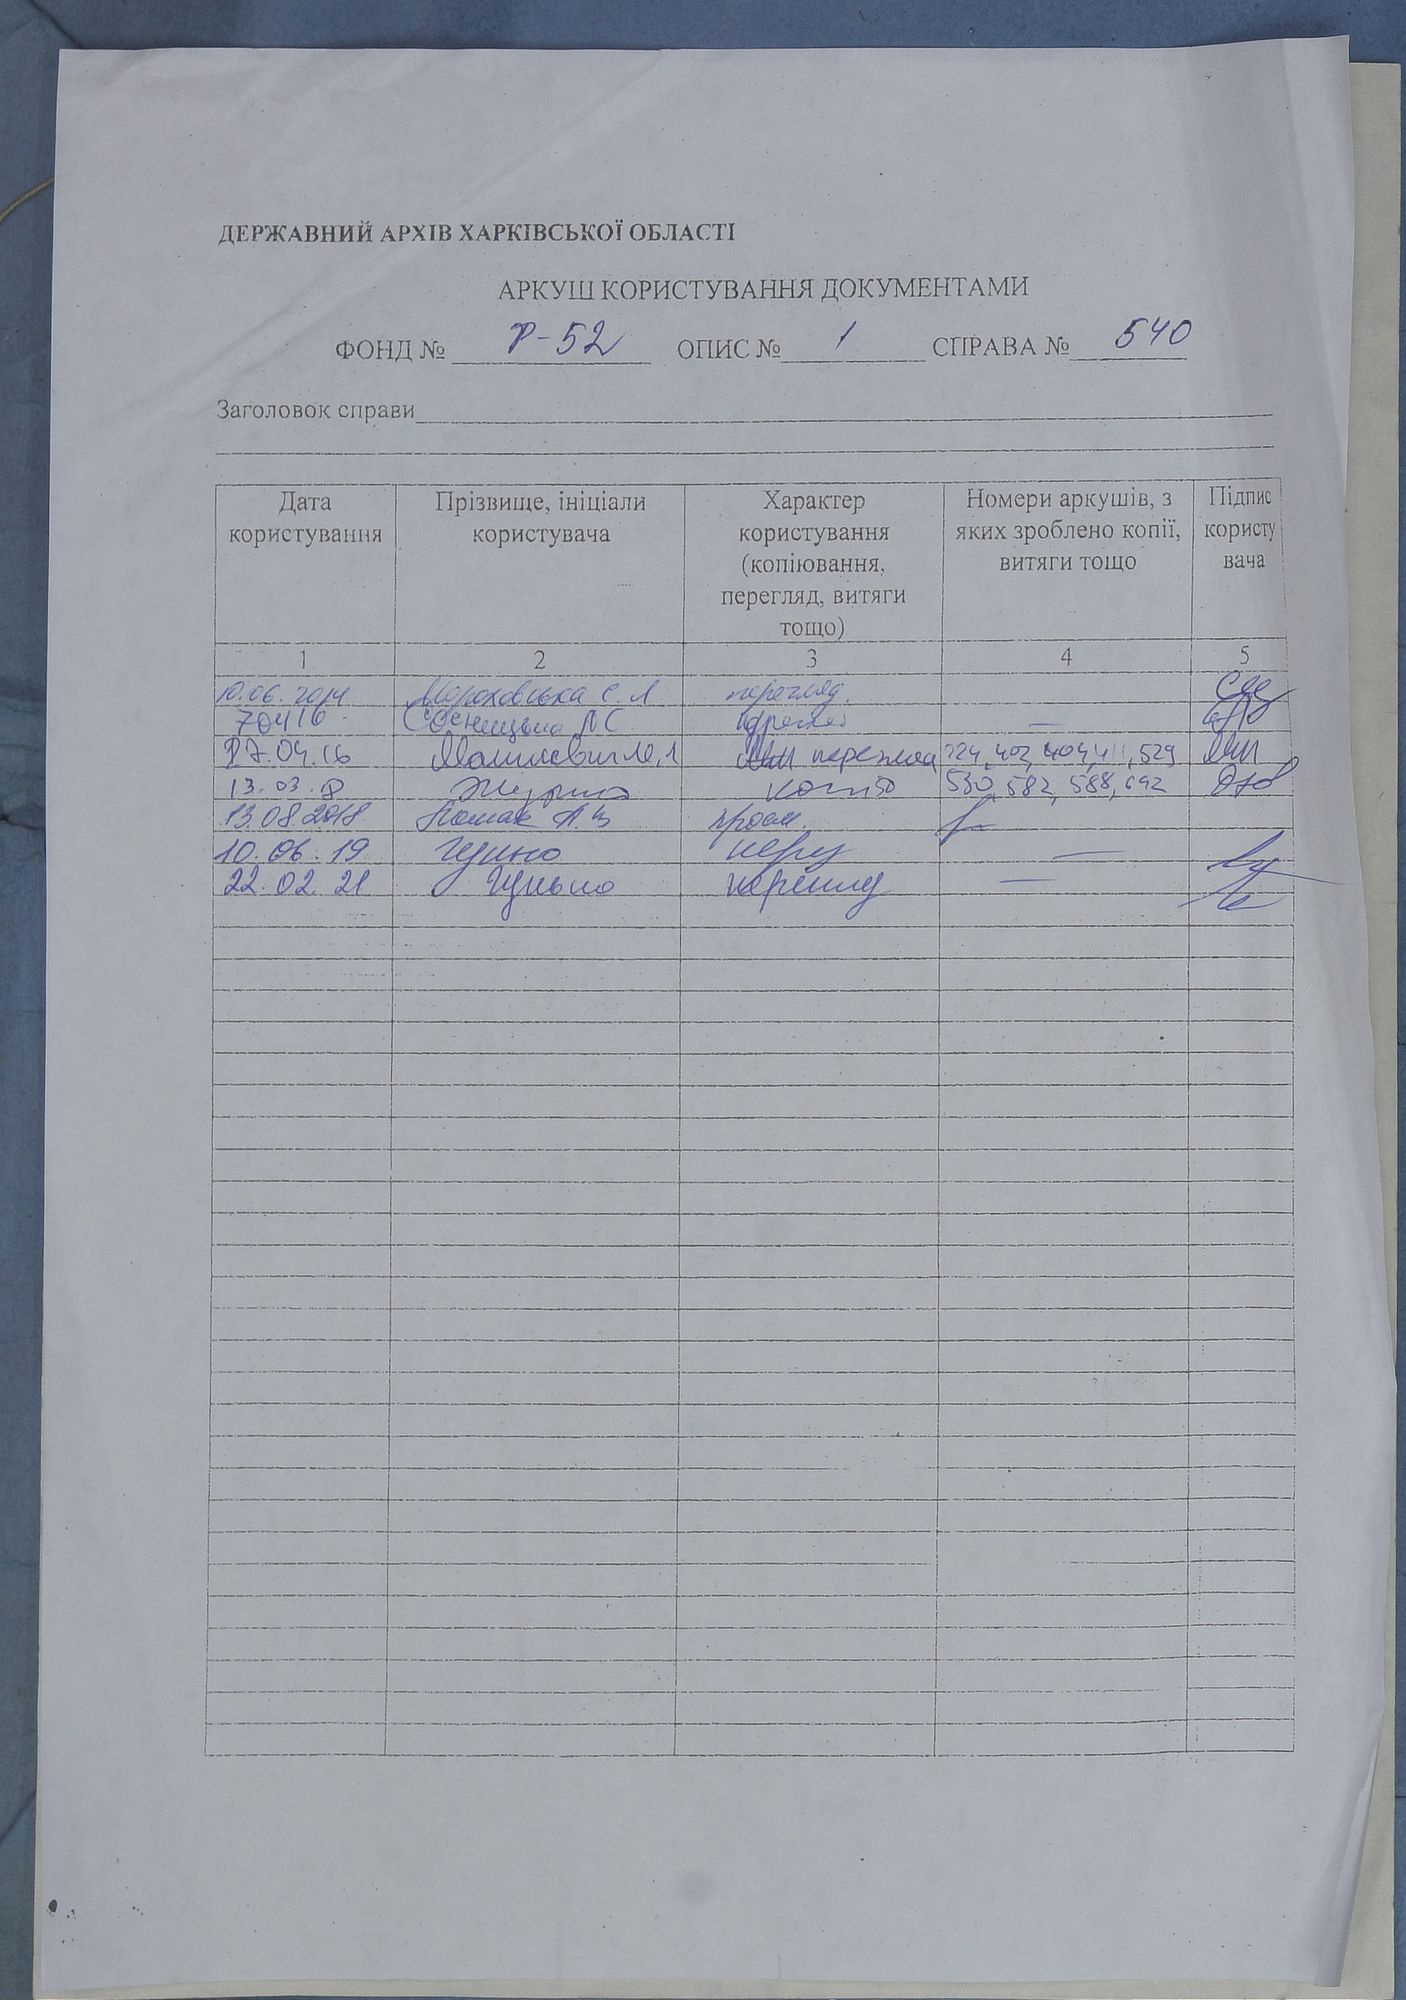 ДЕРЖАВНИЙ АРХІВ ХАРКІВСЬКОЇ ОБЛАСТІ
АРКУШ КОРИСТУВАННЯ ДОКУМЕНТАМИ
ФОНД № Р-52 ОПИС № 1 СПРАВА № 540
Заголовок справи
Дата користування
Прізвище, ініціали користувача
Характер користування (копіювання, перегляд, витяги тощо)
Номери аркушів, з яких зроблено копії, витяги тощо
Підпис користувача
1 2 3 4 5
10.06.2014 Мороховська Є. Л перегляд.
7 04 16 —
27.04.16 перегляд 224, 402, 404, 411, 529
13.03.18 копія 530, 582, 588, 642
13.08.2018
10.06.19 —
22.02.21 —